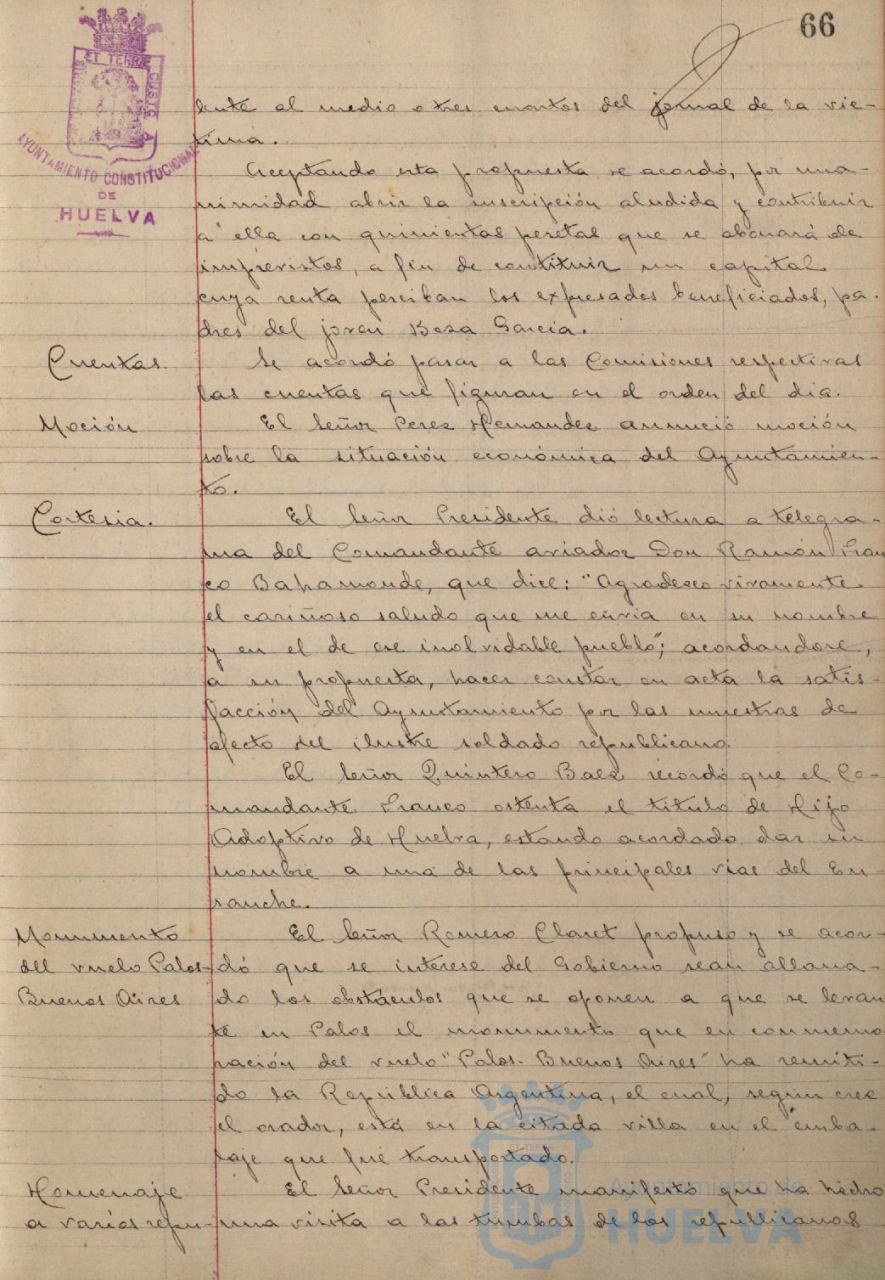 66
ET TERRÆ CUSTO
AYUNTAMIENTO CONSTITUCIONAL
DE
HUELVA
lente al medio o tres cuartos del jornal de la vic-
tima.
Aceptando esta propuesta se acordó, por una-
nimidad abrir la inscripción aludida y contribuir
a ella con quinientas pesetas que se abonará de
imprevistos, a fin de contituir un capital
cuya renta perciban los expresados beneficiados, pa-
dres del joven Beza García.
Cuentas. Se acordó pasar a las Comisiones respectivas
las cuentas que figuran en el orden del dia.
Moción El Señor Perez Hernandez anunció moción
sobre la situación económica del Ayuntamien-
to.
Cortesia. El Señor Presidente dió lectura a telegra-
ma del Comandante aviador Don Ramón Fran
co Bahamonde, que dice: "Agradezco vivamente
el cariñoso saludo que me envia en su nombre
y en el de ese inolvidable pueblo"; acordandose,
a su propuesta, hacer constar en acta la satis-
facción del Ayuntamiento por las muestras de
afecto del ilustre soldado republicano.
El Señor Quintero Baez recordó que el Co-
mandante Franco ostenta el titulo de Hijo
Adoptivo de Huelva, estando acordado dar su
nombre a una de las principales vias del En-
sanche.
Monumento El Señor Romero Claret propuso y se acor-
del vuelo Palos- dó que se interese del Gobierno sean allana-
Buenos Aires do los obstáculos que se oponen a que se levan
te en Palos el monumento que en conmemo
ración del vuelo "Palos-Buenos Aires" ha remiti-
do la República Argentina, el cual, según cree
el orador, está en la citada villa en el emba-
laje que fué transportado.
Homenaje El Señor Presidente manifestó que ha hecho
a varios repu- una visita a las tumbas de los republicanos
Ayuntamiento de
HUELVA